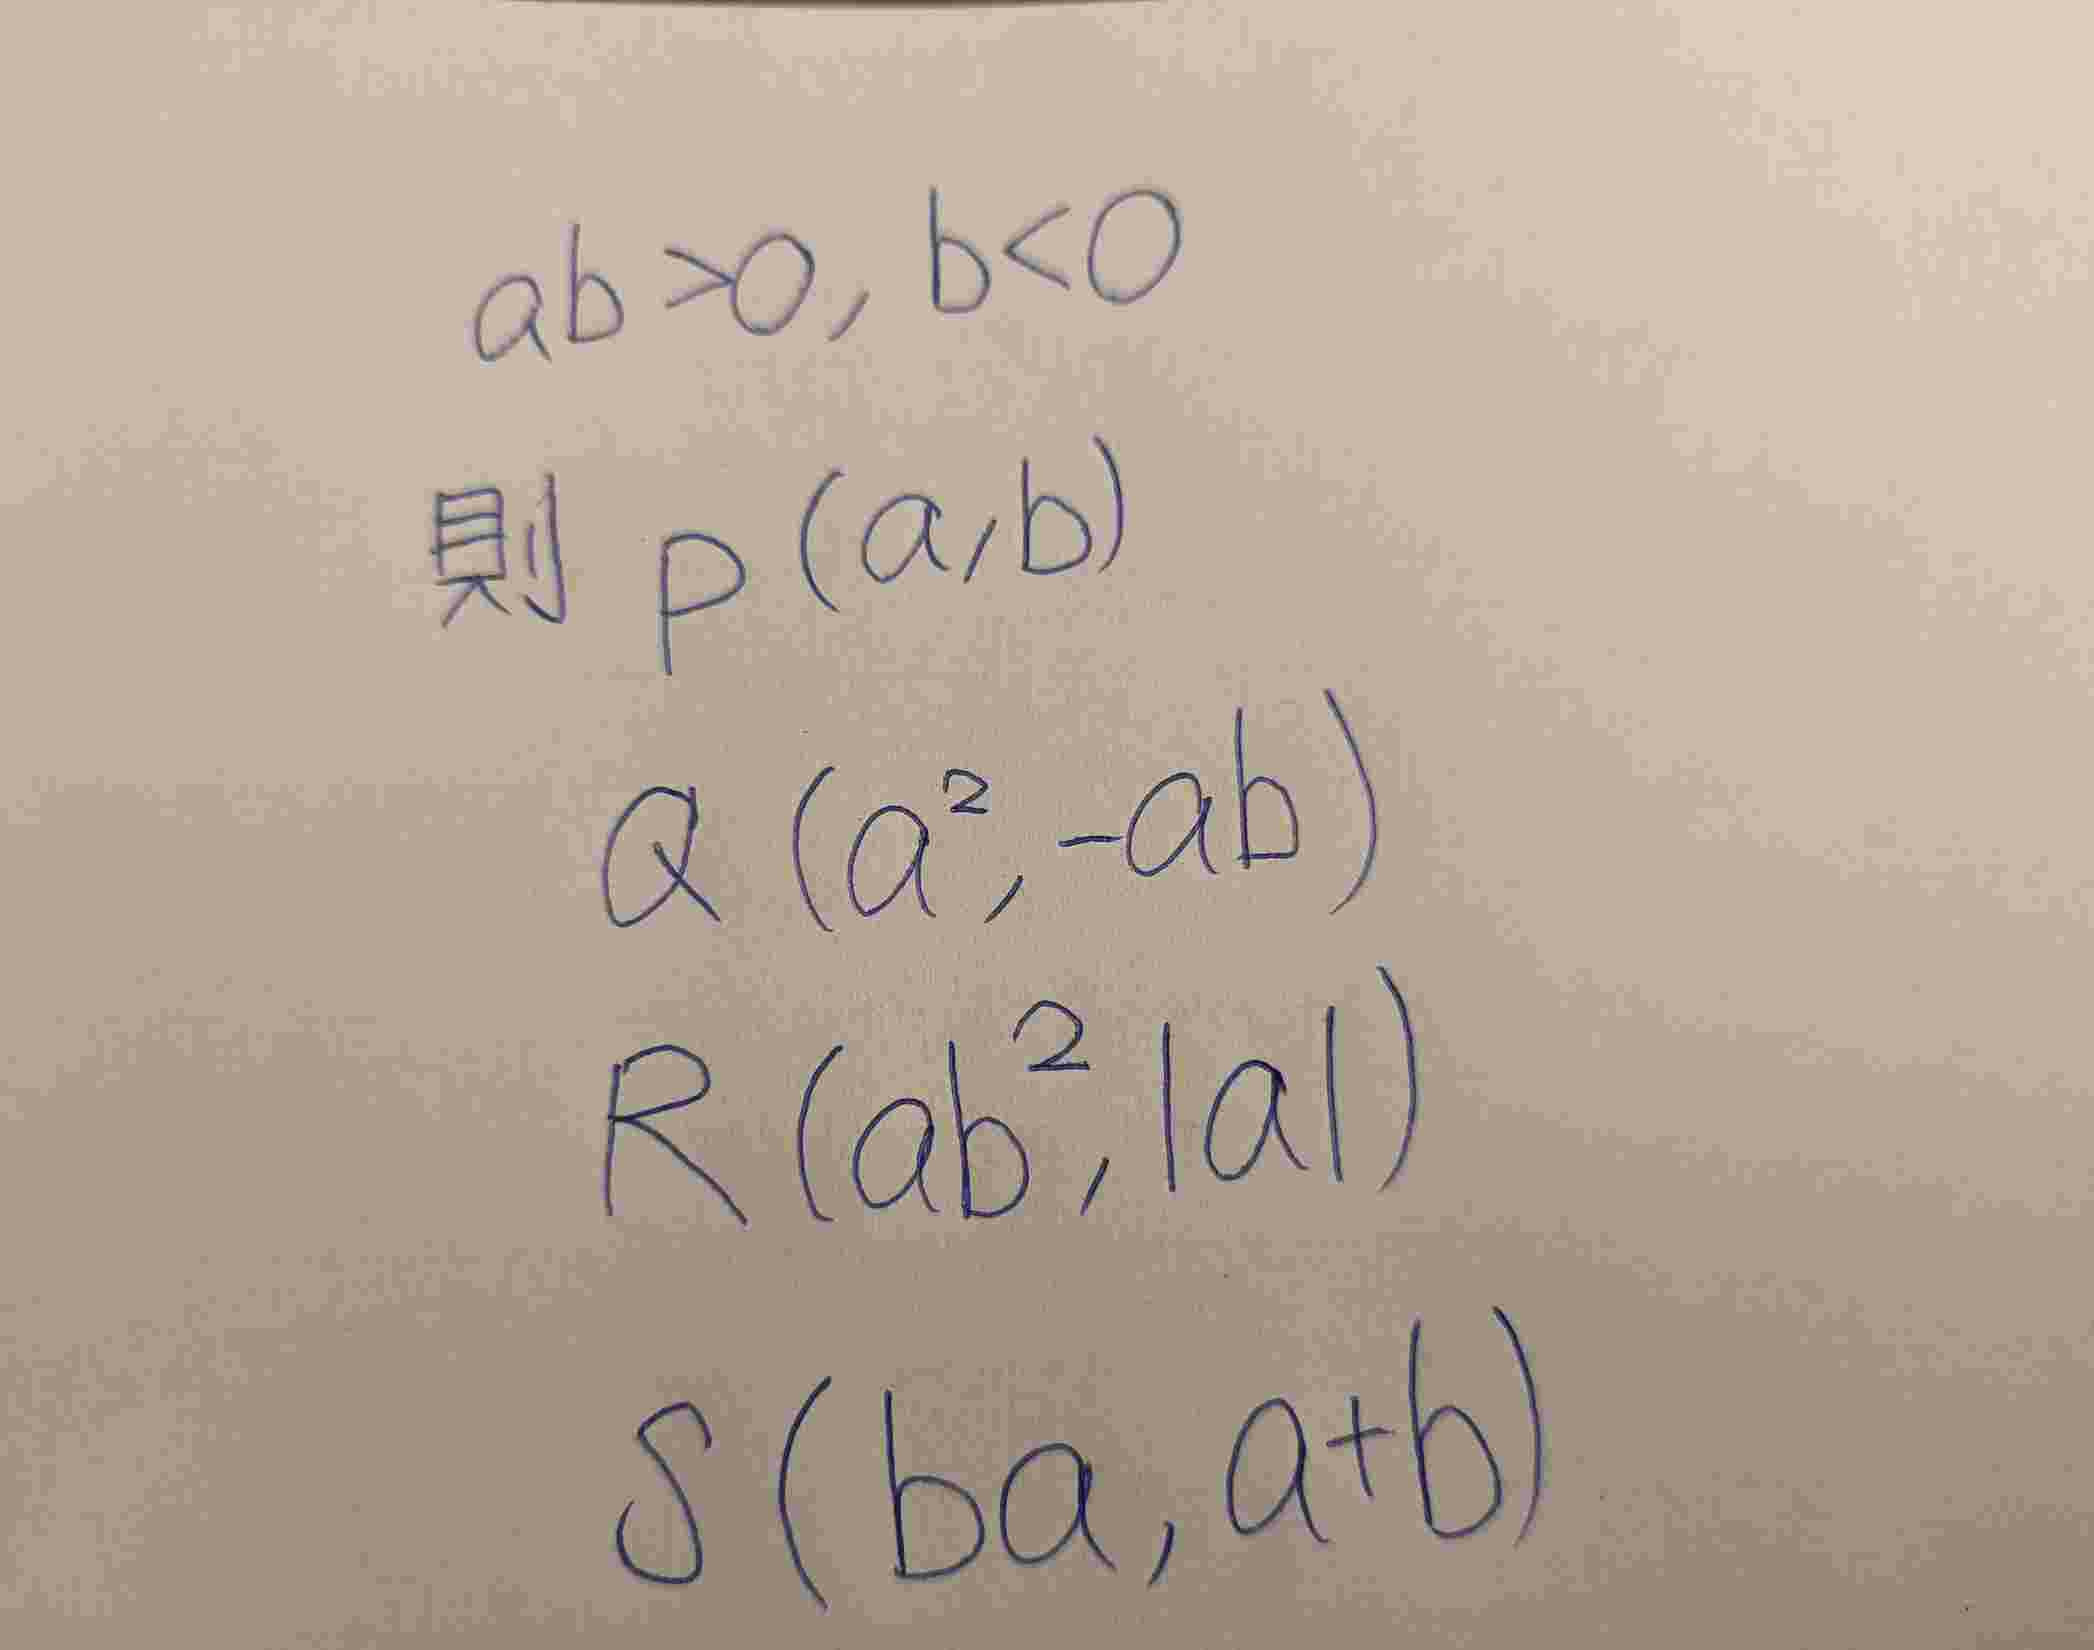 ab>0, b<0
則 P(a,b)
Q(a²,-ab)
R(ab²,|a|)
S(ba,a+b)